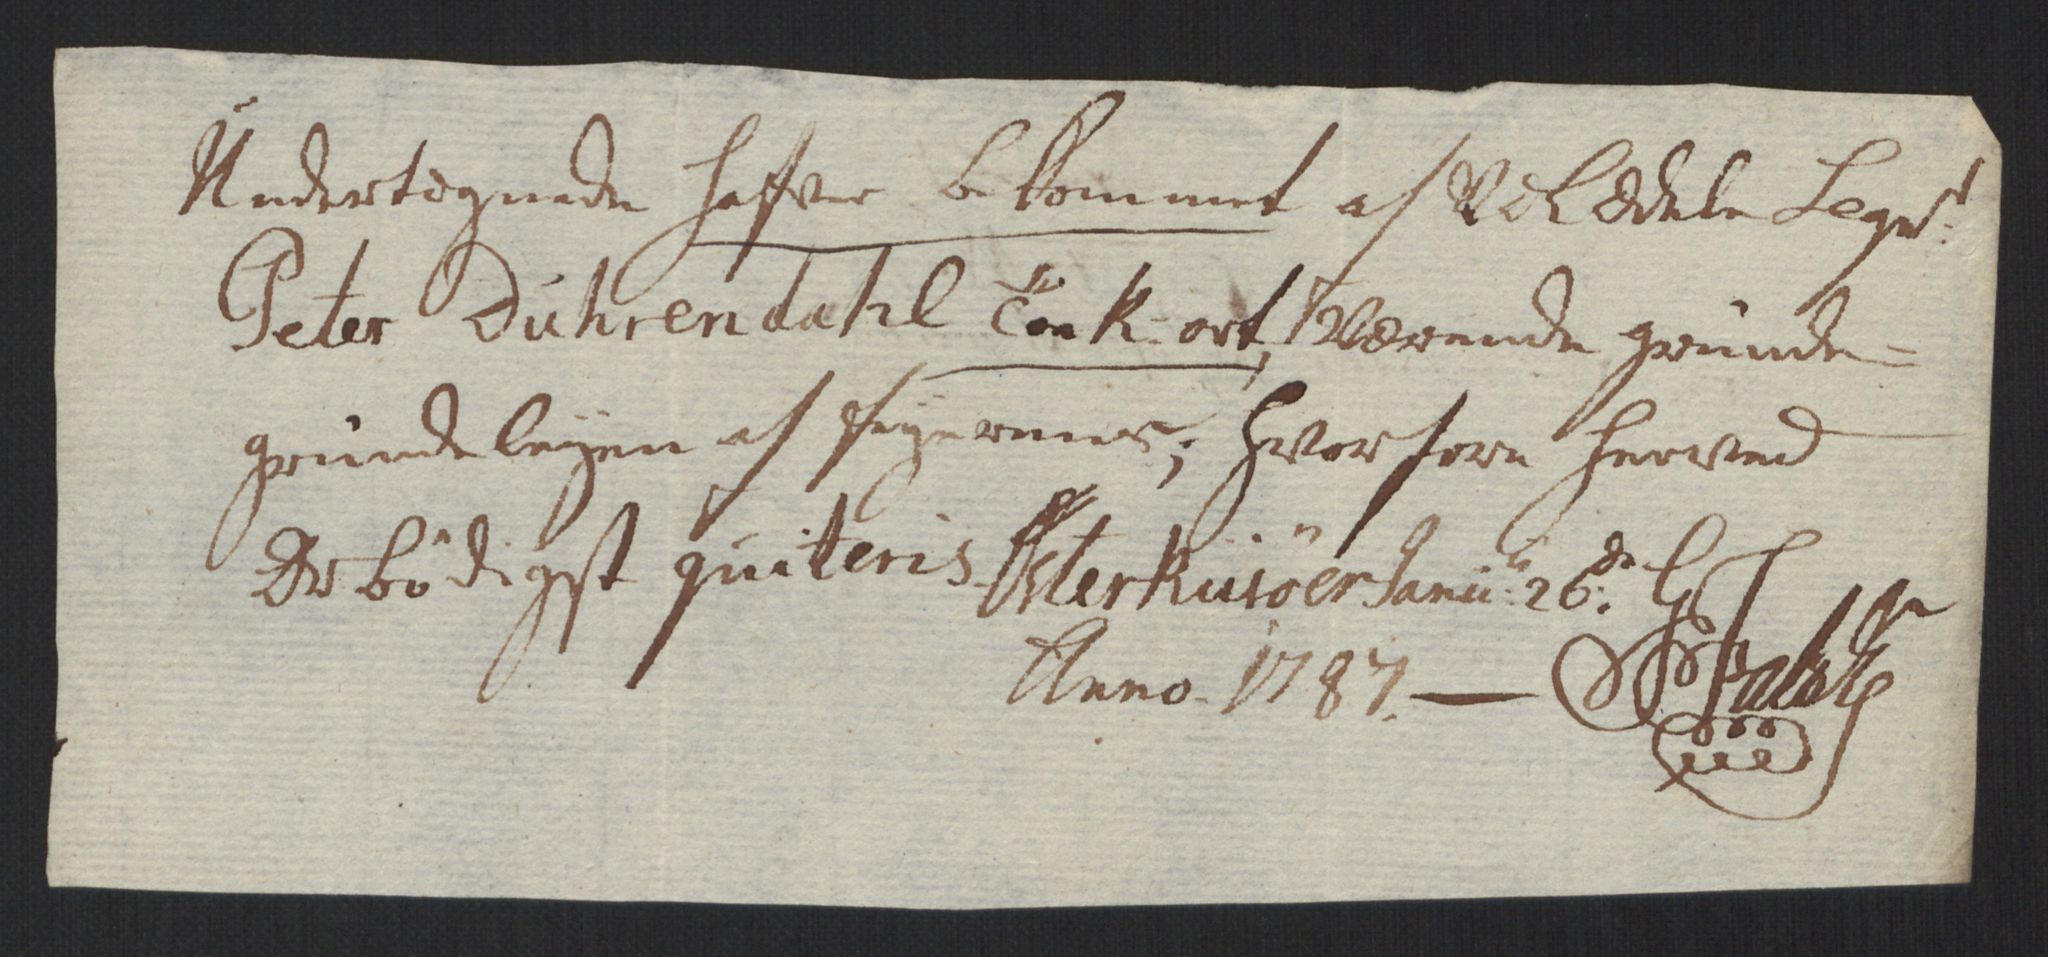 Undertegnede hafver bekommet af VelEdele Segr.
Peter Duhrendahl En R. ort, Værende grunde=
grundeleyen af høyermes; hvorfore herved
Ærbödigst quiteris. Österrüsöer Janu: 26de
Anno 1787. —